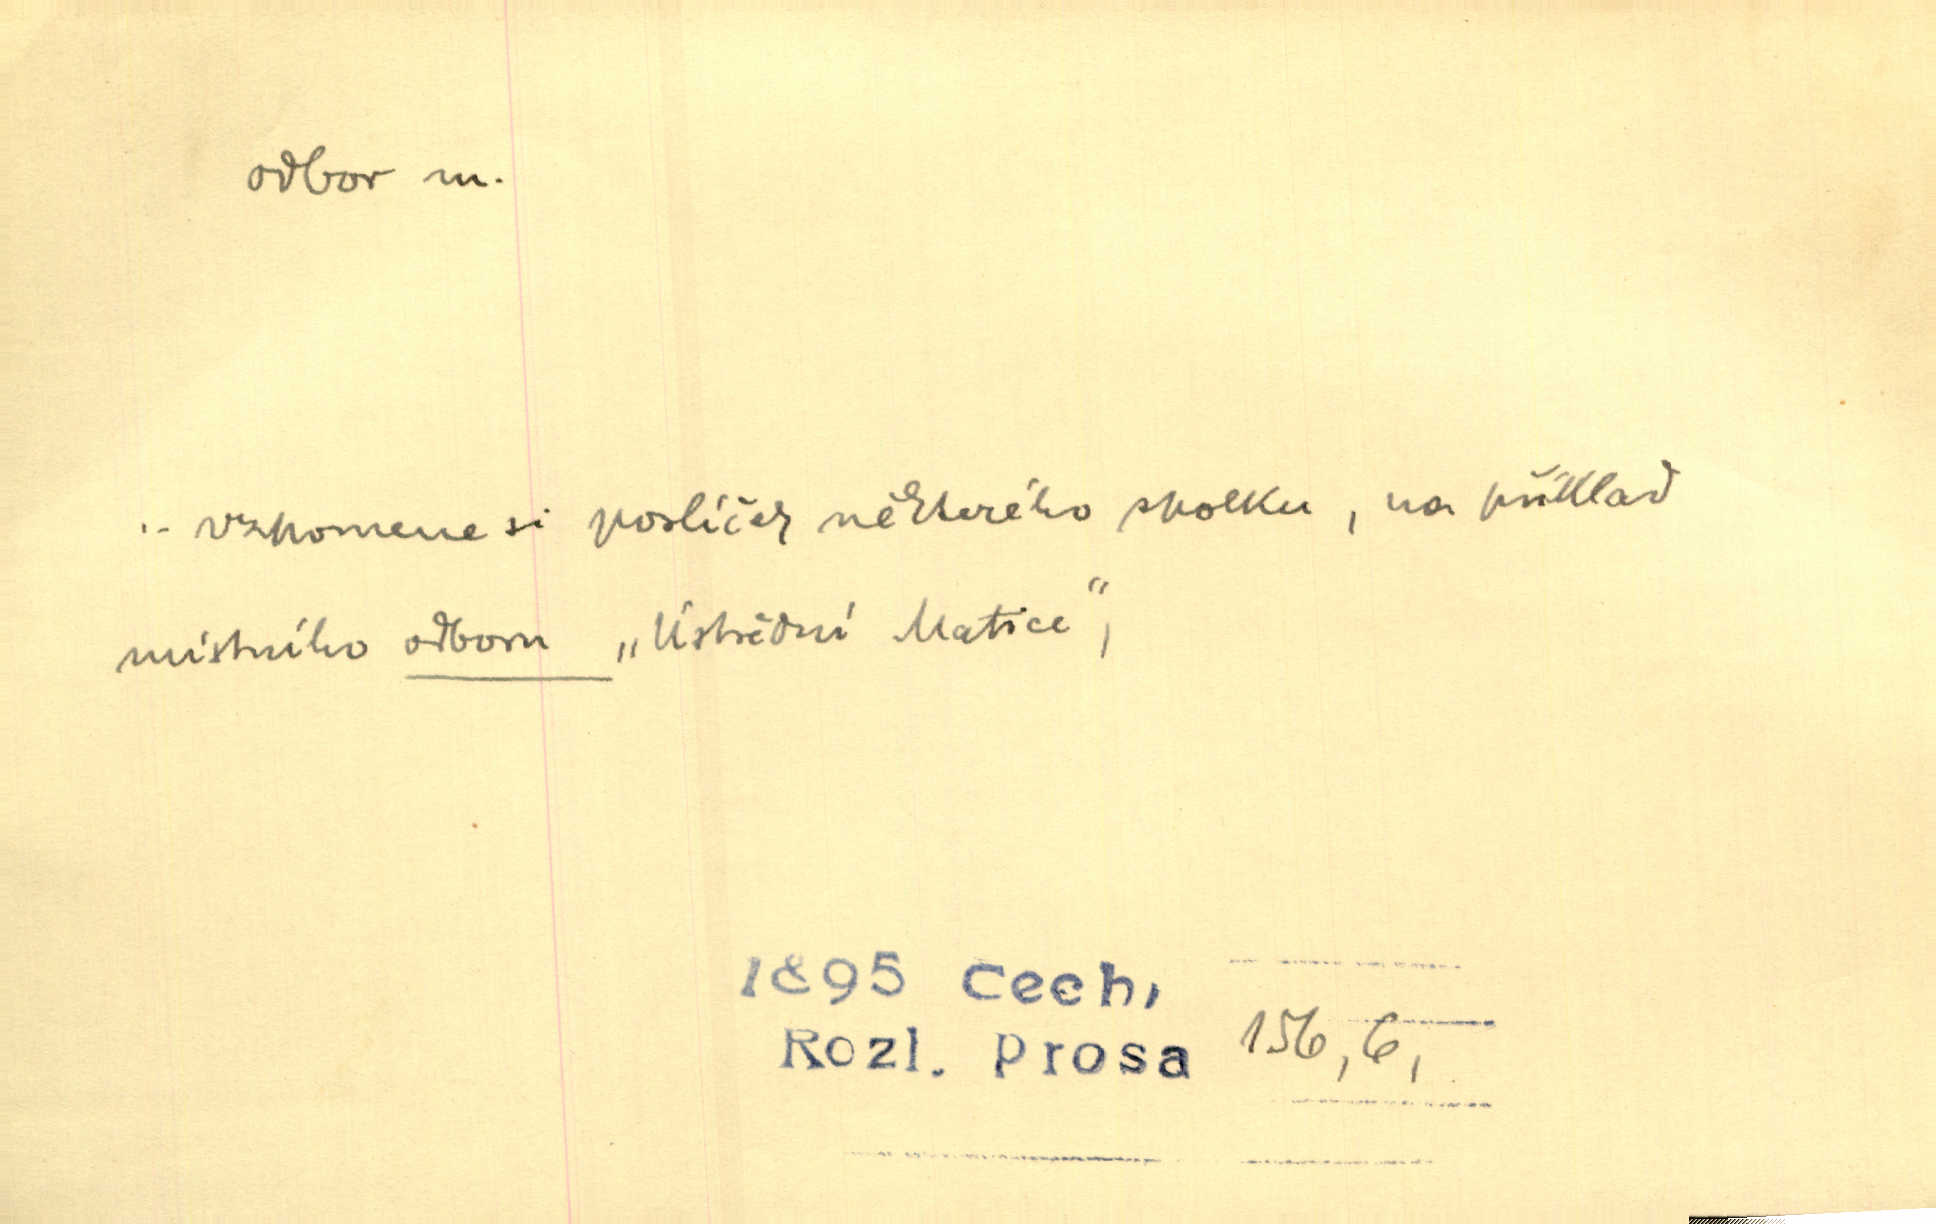 odbor m.
.. vzpomene si poslíček některého spolku, na příklad
místního odboru „Ústřední Matice“,
1895 Čech,
Rozl. Prosa 156, 6,